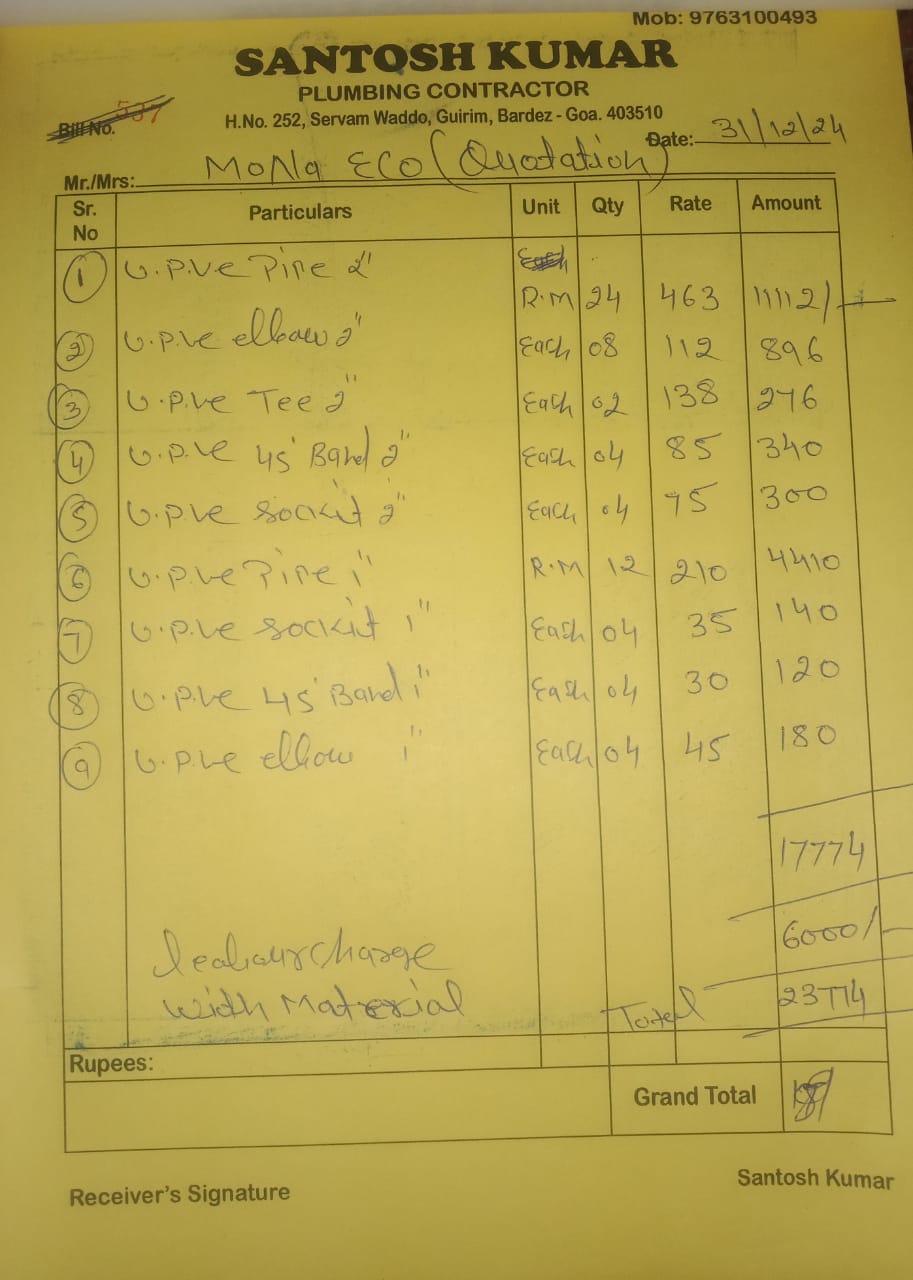 Mob: 9763100493
SANTOSH KUMAR
PLUMBING CONTRACTOR
H.No. 252, Servam Waddo, Guirim, Bardez - Goa. 403510
Bill No. 537
Date: 31/12/24
Mr./Mrs: MoNa Eco (Quotation)
Sr. No Particulars Unit Qty Rate Amount
1 U.P.Ve Pipe 2" R.M 24 463 11112/-
2 U.P.Ve elbow 2" Each 08 112 896
3 U.P.Ve Tee 2" Each 02 138 276
4 U.P.Ve 45° Band 2" Each 04 85 340
5 U.P.Ve Sockit 2" Each 04 75 300
6 U.P.Ve Pipe 1" R.M 12 210 4410
7 U.P.Ve Sockit 1" Each 04 35 140
8 U.P.Ve 45° Band 1" Each 04 30 120
9 U.P.Ve elbow 1" Each 04 45 180
17774
6000/-
charge
with Material Total 23774
Rupees:
Grand Total
Receiver's Signature
Santosh Kumar